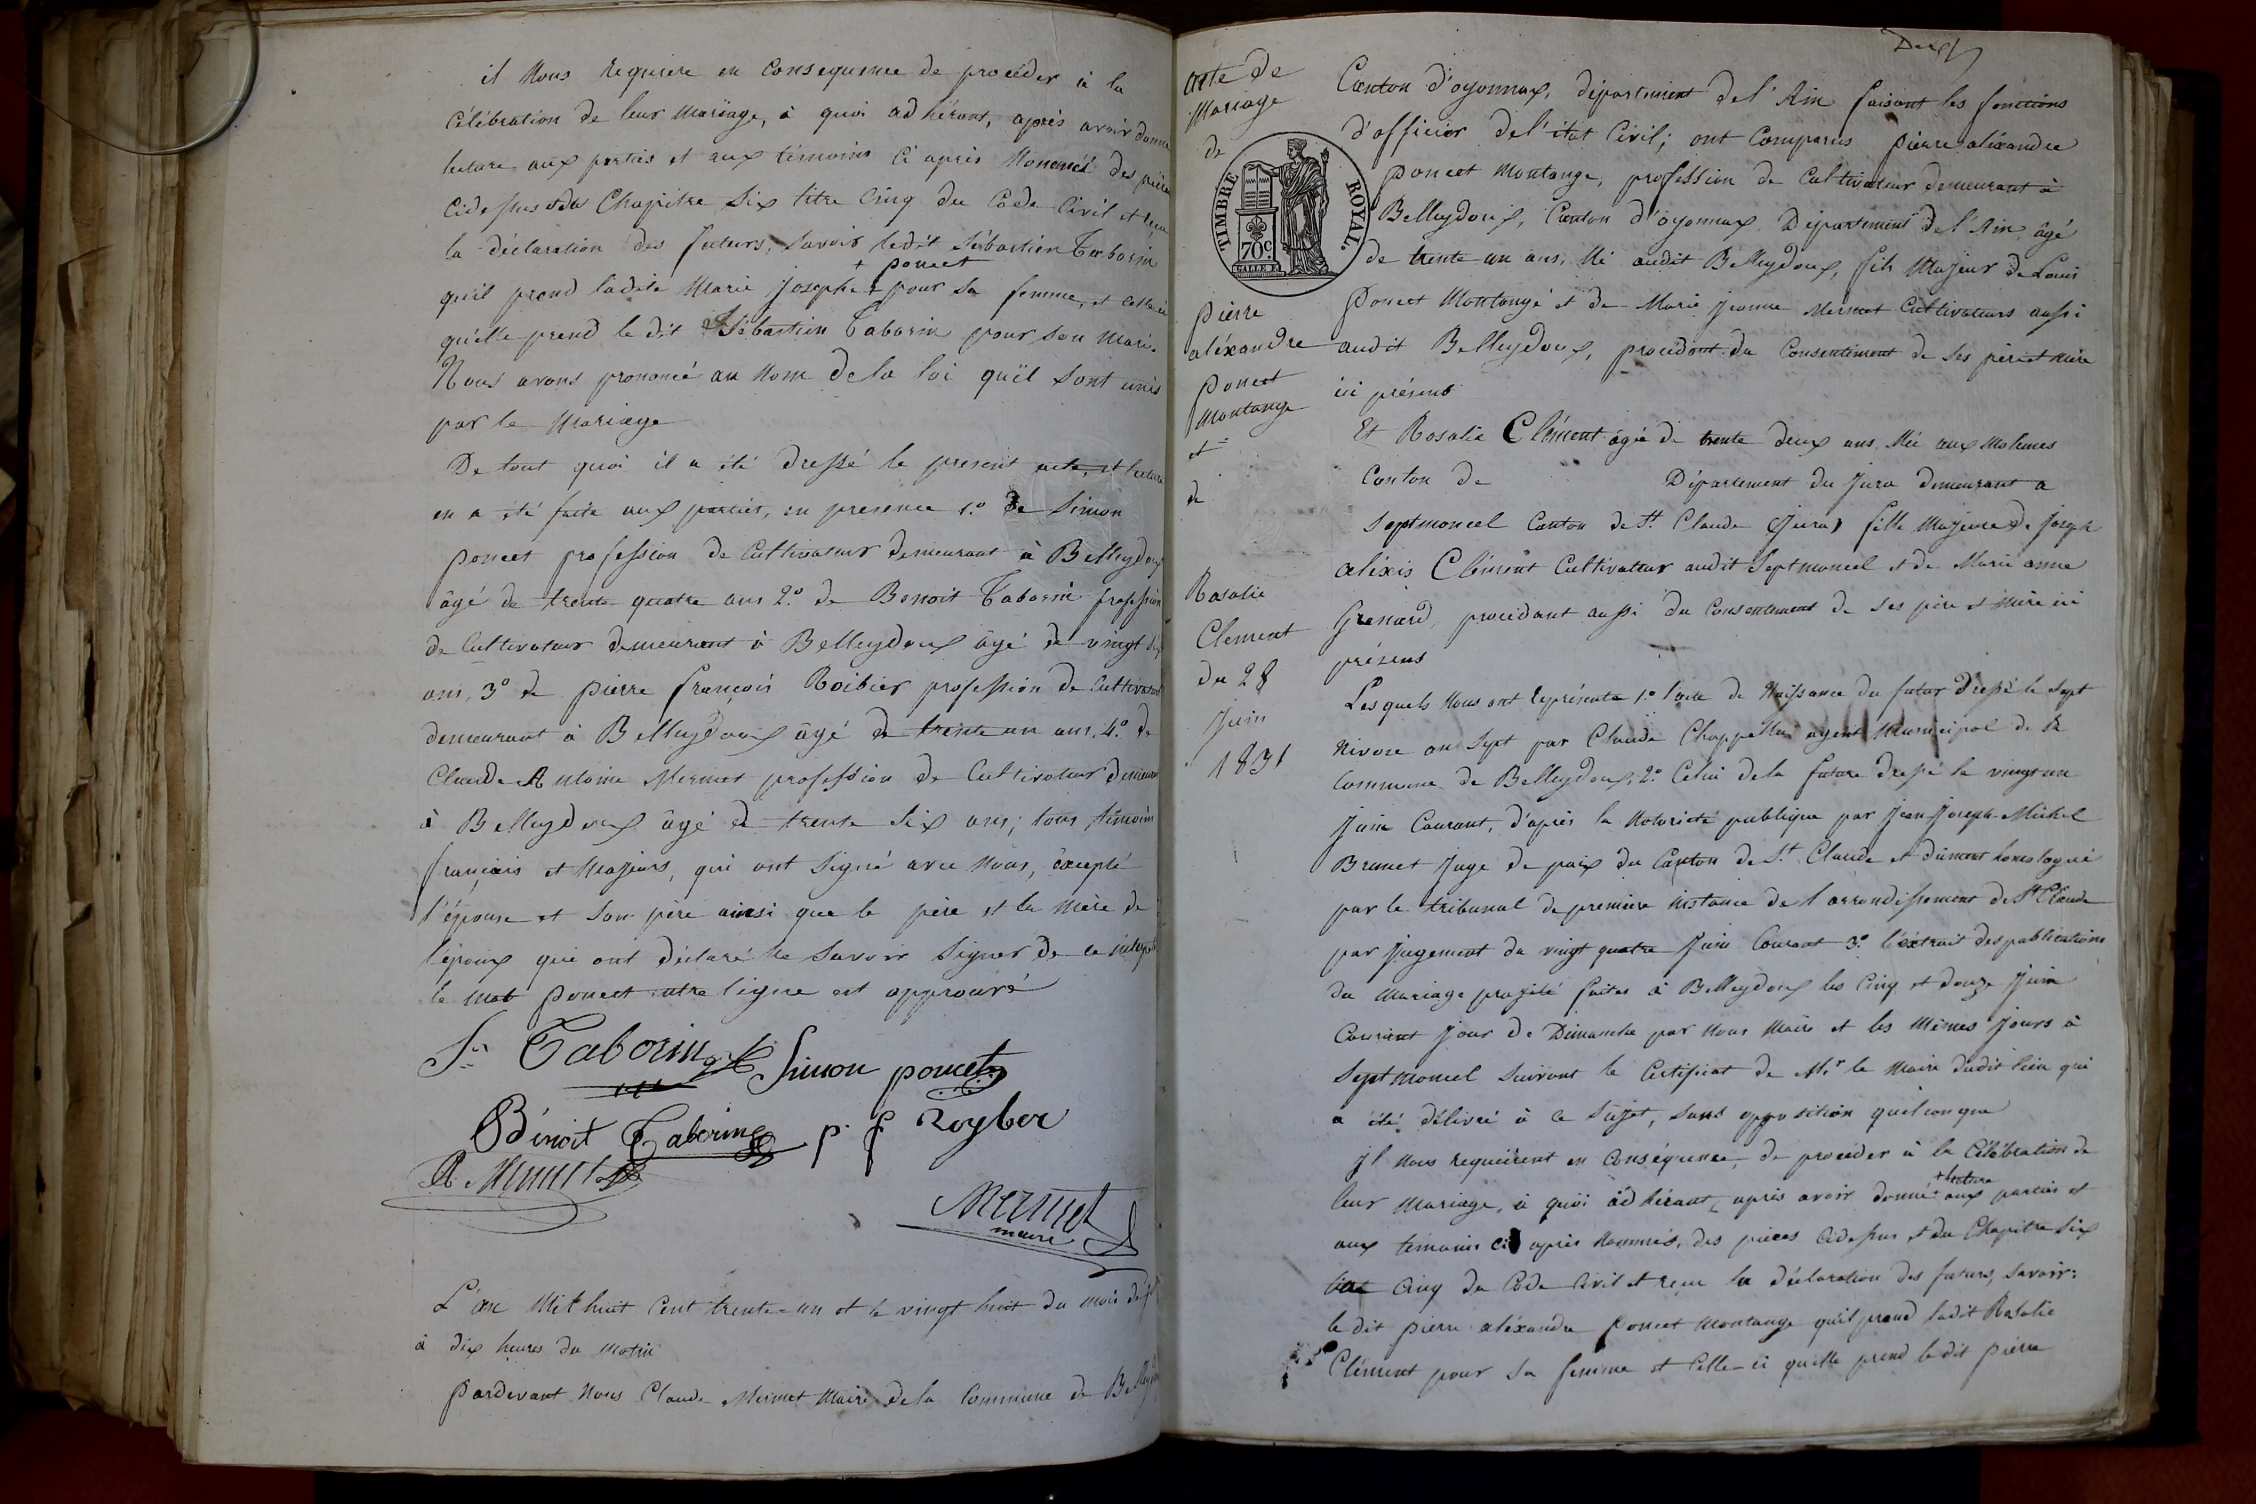 il nous requiere en consequence de proceder à la
célébration de leur mariage, à quoi adhérant, après avoir donné
lecture aux parties et aux témoins ci après nommés des pièces
cidessus et du Chapitre six titre cinq du Code Civil et reçu
la déclaration des futurs, savoir ledit Sébastien Taborin
+ poncet
qu'il prend ladite Marie Josephe + pour sa femme, et celle ci
qu'elle prend le dit Sébastien Taborin pour son mari.
Nous avons prononcé au nom de la loi qu'il sont unis
par le mariage
De tout quoi il a été dressé le present acte, et lecture
en a été faite aux parties, en presence 1.º de Simon
poncet profession de cultivateur demeurant à Belleydoux
âgé de trente quatre ans 2.º de Benoit Taborin profession
de cultivateur demeurant à Belleydoux âgé de vingt
ans, 3º de pierre françois Roibier profession de cultivateur
demeurant à Belleydoux âgé de trente un ans, 4.º de
Claude Antoine Mermet profession de cultivateur demeurant
à Belleydoux âgé de trente six ans; tous témoins
français et majeurs, qui ont signé avec nous, excepté
l'épouse et son père ainsi que le père et la mère de
l'époux qui ont déclaré ne savoir signer de ce
le mot poncet entre ligne est approuvé
Sn Taborin Simon poncet
Bénoit Taborin p. f Roybier
A. Mermet
Mermet
maire
L'an mil huit cent trente-un et le vingt huit du mois de
à dix heures du matin
pardevant nous Claude Mermet Maire de la commune de Belleydoux
acte de
Mariage
de
pierre
aléxandre
poncet
montange
et
de
Rosalie
Clement
du 28
Juin
1831
TIMBRE ROYAL.
70c.
Canton d'oyonnax, département de l'Ain faisant les fonctions
d'officier de l'état Civil; ont comparus pierre aléxandre
poncet Montange, profession de cultivateur demeurant à
Belleydoux, Canton d'oyonnax Département de l'Ain, âgé
de trente un ans, né audit Belleydoux, fils majeur de Louis
poncet Montange et de Marie Jeanne Mermet cultivateurs aussi
audit Belleydoux, procédant du consentement de ses père et mère
ici présents
Et Rosalie Clément âgée de trente deux ans, née aux molunes
Canton de Département du Jura demeurant a
Septmoncel Canton de St Claude (Jura) fille majeure de Joseph
aléxis Clément Cultivateur audit Septmoncel et de Marie anne
Grenard, procédant aussi du consentement de ses père et mère ici
présens
Lesquels nous ont représenté 1.º l'acte de naissance du futur dressé le sept
nivose an sept par Claude Chappellu agent municipal de la
commune de Belleydoux, 2.º Celui de la future dressé le vingt un
Juin Courant, d'après la notoriété publique par Jean Joseph Michel
Brunet Juge de paix du Canton de St. Claude et dûment homologué
par le tribunal de première instance de l'arrondissement de St Claude
par Jugement du vingt quatre Juin Courant 3.º l'extrait des publications
du mariage projeté faites à Belleydoux les cinq et douze Juin
Courant jour de Dimanche par nous maire et les mêmes jours à
Septmoncel suivant le Certificat de Mr. le maire dudit lieu qui
a été délivré à ce sujet, sans opposition quelconque
Il nous requièrent en conséquence, de procéder à la célébration de
+ lecture
leur mariage, à quoi adhérant, après avoir donné + aux parties et
aux témoins ci après nommés, des pièces cidessus et du Chapitre six
titre cinq du Code Civil et reçu la déclaration des futurs, savoir:
le dit pierre aléxandre poncet montange qu'il prend ladit Rosalie
Clément pour sa femme et celle-ci qu'elle prend le dit pierre